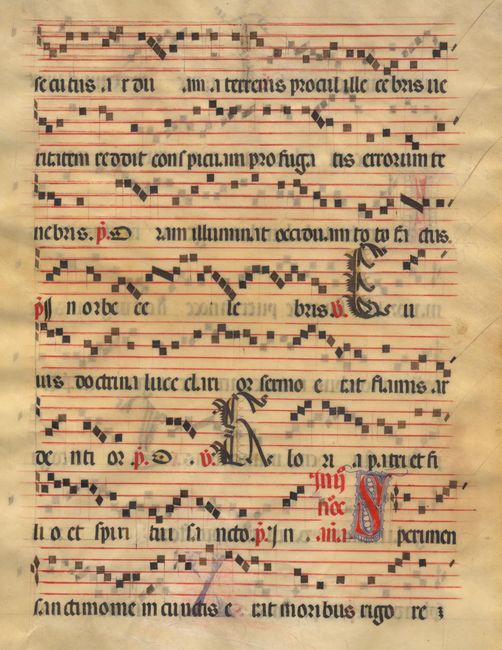 secutus ardu ama terrenis procul illecebris ue
ritatem reddit conspicuam profuga tis errorum te
nebris. p̃. O ram illuminat occiduam to to fa ctus.
p̃ In orbe ce le bris. V̄. Cu
ius doctrina luce clari or sermo e rat flamis ar
de nti or. p̃. O . V̄. G lo ri a patri et fi
li o et spiri tui sancto. p̃. In .
S perimen
sanctimonie in cunctis e rat moribus rigo re